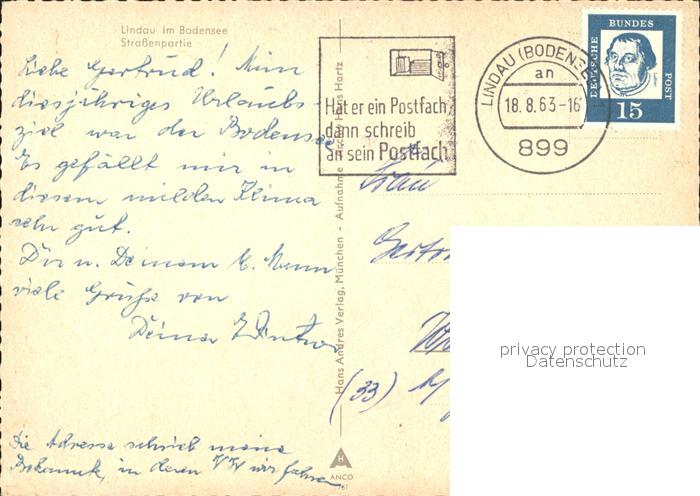 Lindau im Bodensee
Straßenpartie
Liebe Gertrud! Mein
diesjähriges Urlaubs-
ziel war der Bodensee.
Es gefällt mir in
diesem milden Klima
sehr gut.
Dir u. Deinem lb. Mann
viele Grüße von
Deiner
Die Adresse schrieb meine
Bekannte, in deren VW wir fahren.
Hans Andres Verlag, München - Aufnahme Hans Hartz
ANCO
Hat er ein Postfach,
dann schreib
an sein Postfach
LINDAU (BODENSEE)
an
18.8.63-16
899
DEUTSCHE BUNDES POST
15
Frau
(33)
privacy protection
Datenschutz